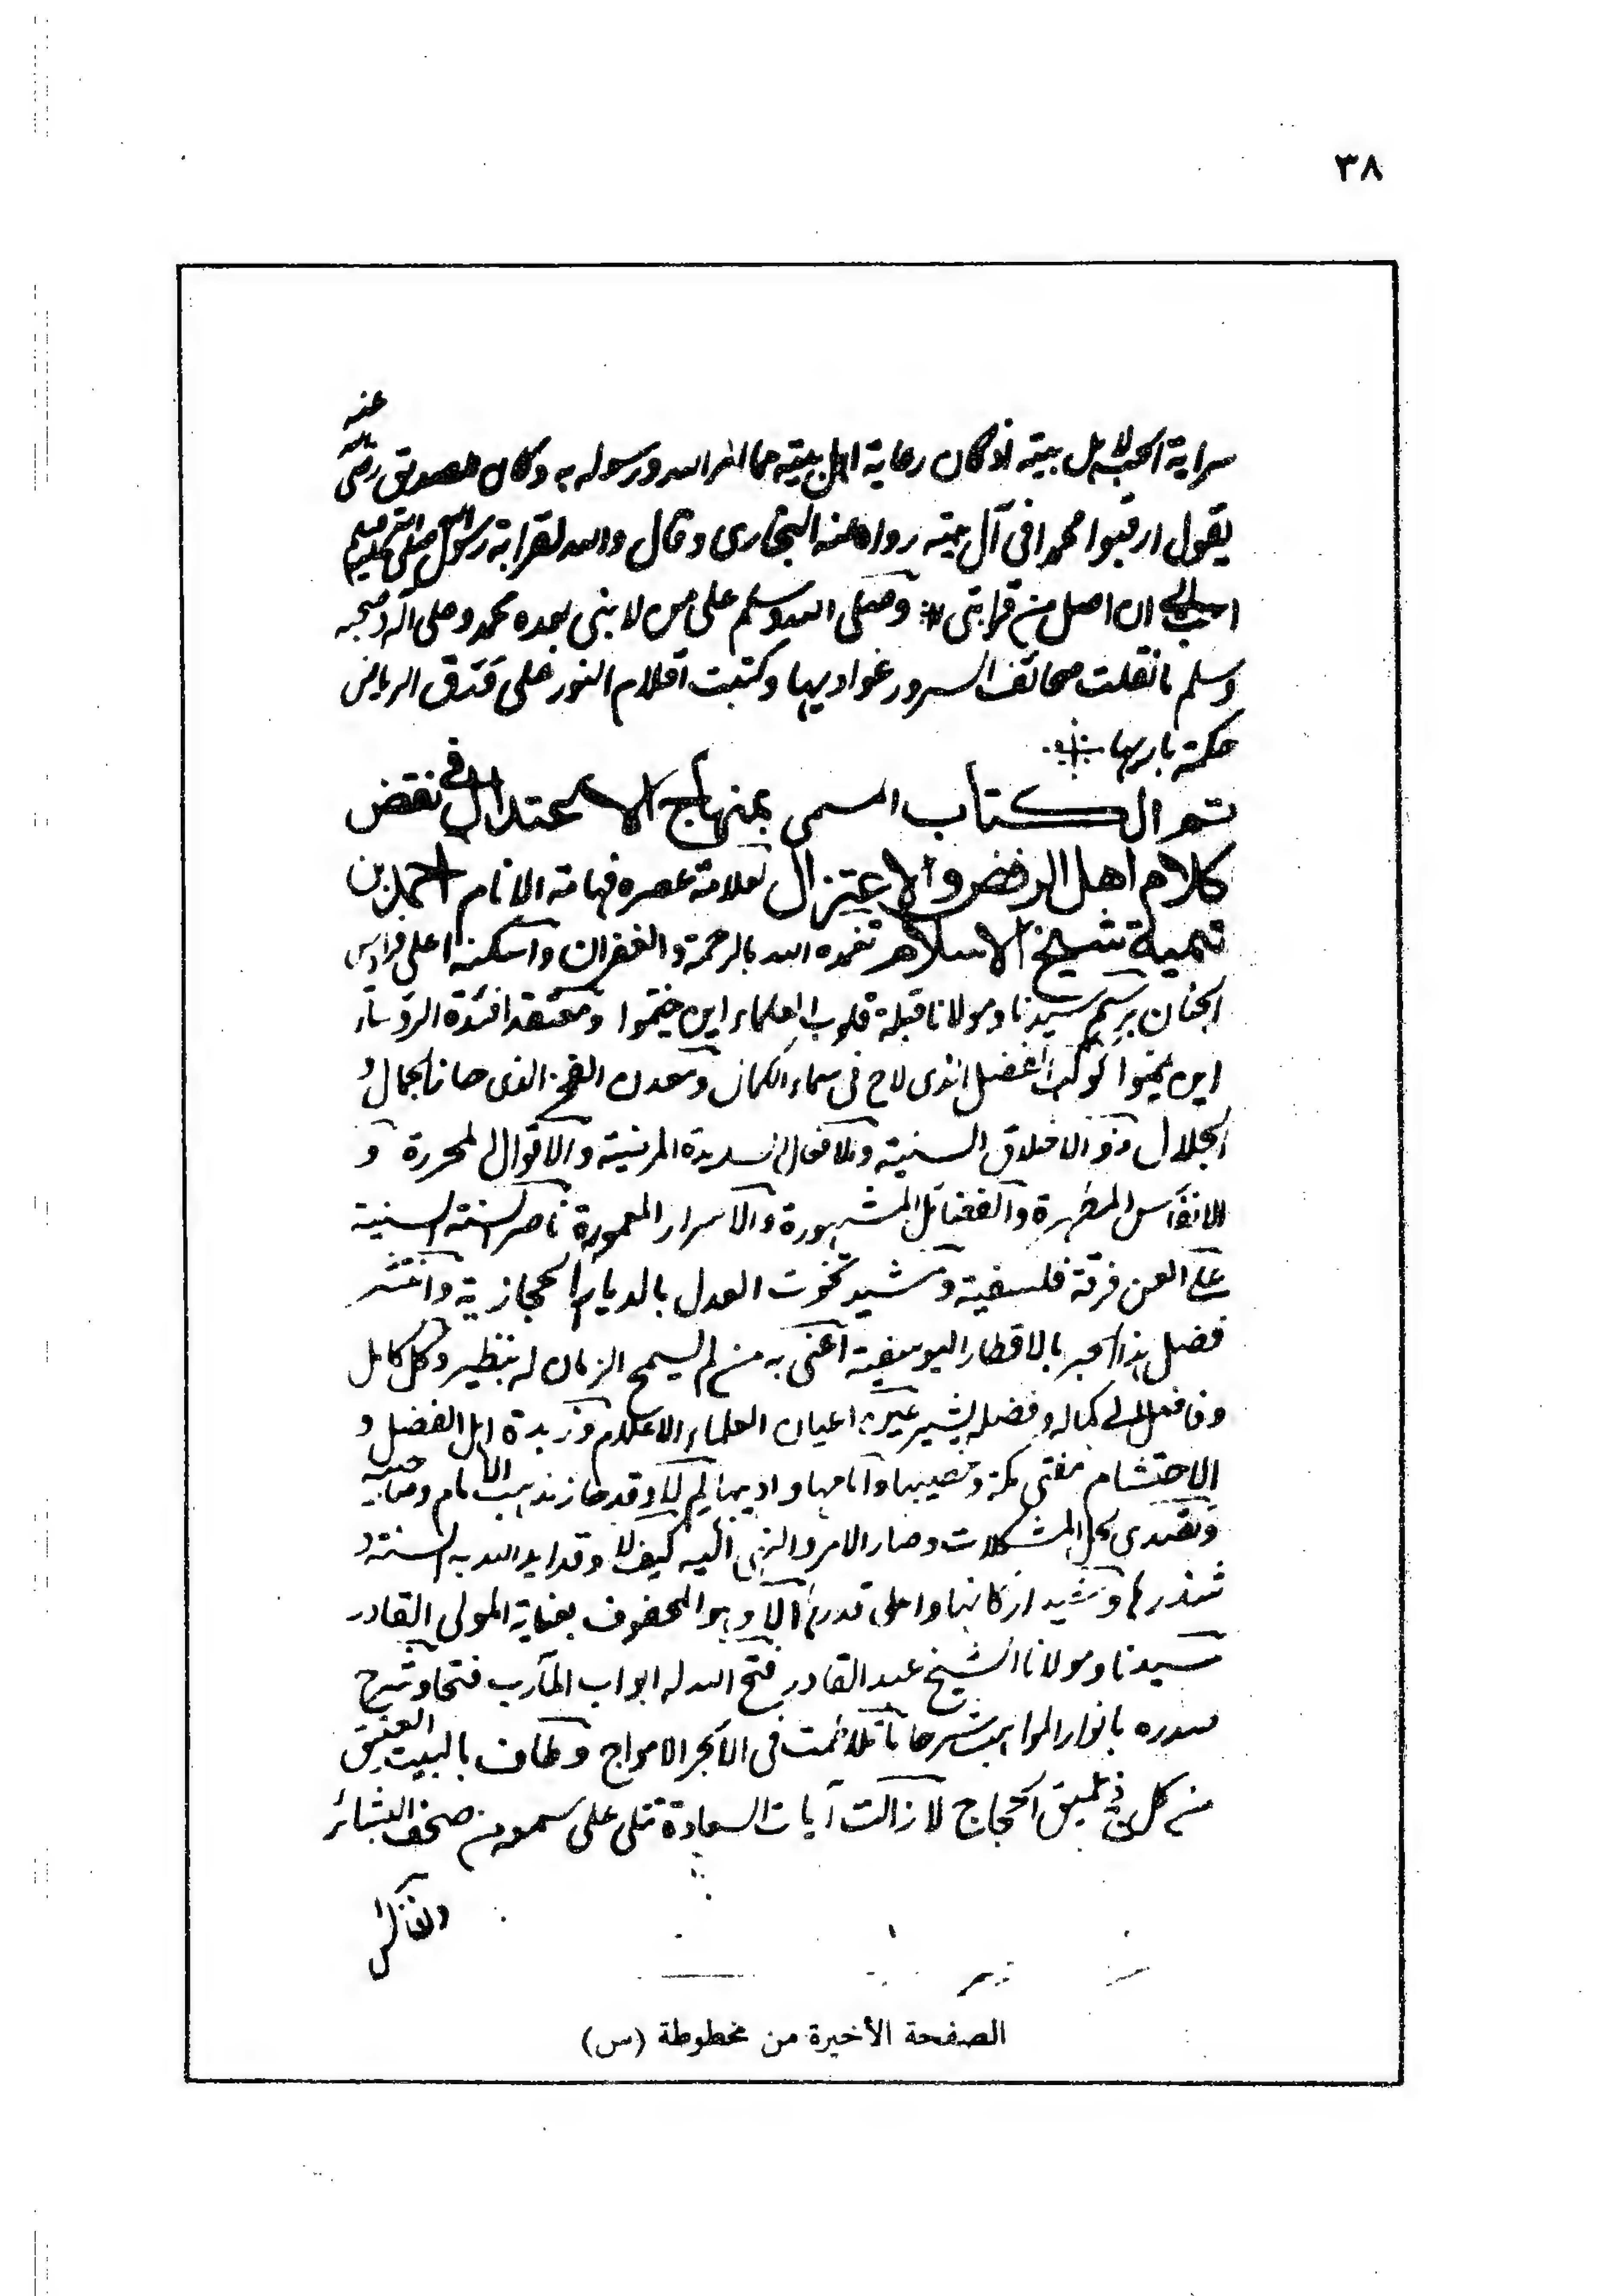 ٣٨
سراية الحب لاهل بيته اذ كان رعاية اهل بيته مما امر الله ورسوله به وكان الصديق رضى الله عنه
يقول ارقبوا محمدا فى آل بيته رواه عنه البخارى وقال والله لقرابة رسول الله صلى الله عليه وسلم
احب الى ان اصل من قرابتى وصلى الله وسلم على من لا نبى بعده محمد وعلى اله وصحبه
وسلم ما نقلت صحائف السرور غواديها وكتبت اقلام النور على ورق الرياض
حكمة باريها
تم الكتاب المسمى بمنهاج الاعتدال فى نقض
كلام اهل الرفض والاعتزال لعلامة عصره فهامة الانام احمد بن
تيمية شيخ الاسلام تغمده الله بالرحمة والغفران واسكنه اعلى فراديس
الجنان برسم سيدنا ومولانا قبلة قلوب العلماء اين خيموا ومعتقد افئدة الرؤساء
اين يمموا كوكب الفضل الذى لاح فى سماء الكمال ومعدن الفخر الذى حاز الجمال و
الجلال ذو الاخلاق السنية والافعال السديدة المرضية والاقوال المحررة و
الانفاس المطهرة والفضائل المشهورة والاسرار المعمورة ناصر السنة السنية
على العن فرقة فلسفية ومشيد تخوت العدل بالديار الحجازية وانتشر
فضل هذا الحبر بالاقطار اليوسفية اعنى به من لم يسمح الزمان له بنظير وكل كامل
وفاضل الى كماله وفضله يشير عين اعيان العلماء الاعلام وزبدة اهل الفضل و
الاحتشام مفتى مكة وخطيبها وامامها واديبها لم لا وقد حاز مذهب الامام وصاحبيه
وتصدى لحل المشكلات وصار الامر والنهى اليه كيف لا وقد ايد الله به السنة و
وشيد اركانها واعلى قدرها الا وهو المحفوف بعناية المولى القادر
سيدنا ومولانا الشيخ عبد القادر فتح الله له ابواب المآرب فتحا وشرح
صدره بانوار المواهب شرحا ما تلاطمت فى الابحر الامواج وطاف بالبيت العتيق
من كل فج عميق الحجاج لا زالت آيات السعادة تتلى على سموه من صحف البشائر
الصفحة الأخيرة من مخطوطة (س)